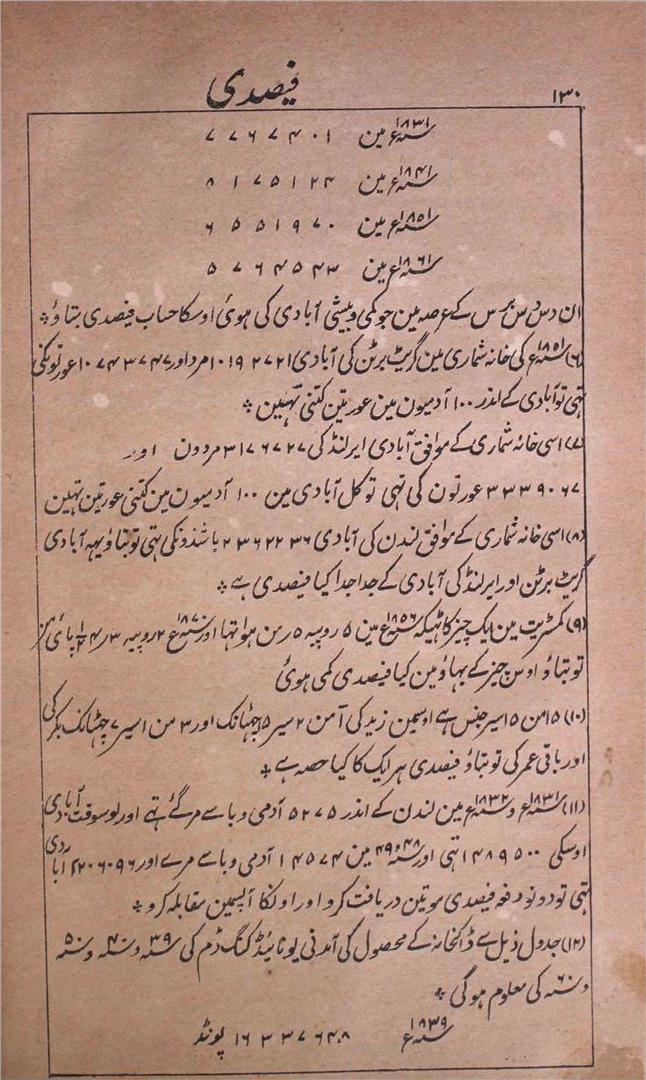 ۱۳۰ فیصدی
سنہ ۱۸۳۱ع مین ۷۷۶۷۴۰۱
سنہ ۱۸۴۱ع مین ۸۱۷۵۱۲۴
سنہ ۱۸۵۱ع مین ۶۵۵۱۹۷۰
سنہ ۱۸۶۱ع مین ۵۷۶۴۵۴۳
ان دس دس برس کے عرصہ مین جو کمی و بیشی آبادی کی ہوئی اوسکا حساب فیصدی بتاؤ ٭
(۶) سنہ ۱۸۵۱ع کی خانہ شماری مین گریٹ برٹن کی آبادی ۱۰۱۹۲۷۲۱ مرد اور ۱۰۷۴۳۷۴۷ عورتونکی
تہی تو آبادی کے اندر ۱۰۰ آدمیون مین عورتین کتنی تہین ٭
(۷) اسی خانہ شماری کے موافق آبادی ایرلنڈ کی ۳۱۷۶۷۲۷ مردون اور
۳۳۳۹۰۶۷ عورتون کی تہی تو کل آبادی مین ۱۰۰ آدمیون مین کتنی عورتین تہین
(۸) اسی خانہ شماری کے موافق لندن کی آبادی ۲۳۶۲۲۳۶ باشندونکی تہی تو بتاؤ یہہ آبادی
گریٹ برٹن اور ایرلنڈ کی آبادی کے جدا جدا کیا فیصدی ہے ٭
(۹) کمسریٹ مین ایک چیز کا ٹہیکہ سنہ ۱۸۵۶ع مین ۵ روپیہ ۵ر من ہوا تہا اور سنہ ۱۸۷۰ع ۲ روپیہ ۳ر ۴½ پائی من
تو بتاؤ اوس چیز کے بہاؤ مین کیا فیصدی کمی ہوئی
(۱۰) ۱۵ من ۱۵ سیر جنس ہے اوسمین زید کی آمن ۲ سیر ۱۵ چہٹانک اور ۳ من اسیر ۷ چہٹانک بکر کی
اور باقی عمر کی تو بتاؤ فیصدی ہر ایک کا کیا حصہ ہے ٭
(۱۱) سنہ ۱۸۳۱ع و سنہ ۱۸۳۲ع مین لندن کے اندر ۵۲۷۵ آدمی وبا سے مر گئے تہے اور اوسوقت آبادی
اوسکی ۱۴۸۹۵۰۰ تہی اور سنہ ۴۸ و ۴۹ع مین ۱۴۵۷۴ آدمی وبا سے مرے اور ۲۲۰۶۰۹۶ آبادی
تہی تو دونو دفعہ فیصدی موتین دریافت کرو اور اونکا آپسمین مقابلہ کرو ٭
(۱۲) جدول ذیل سے ڈاکخانہ کے محصول کی آمدنی یونائیٹڈ کنگ ڈم کی سنہ ۳۹ و سنہ ۴۰ و سنہ ۵۰
و سنہ ۶۰ کی معلوم ہوگی ٭
سنہ ۱۸۳۹ع ۱۶۳۳۷۶۴۸ پونڈ